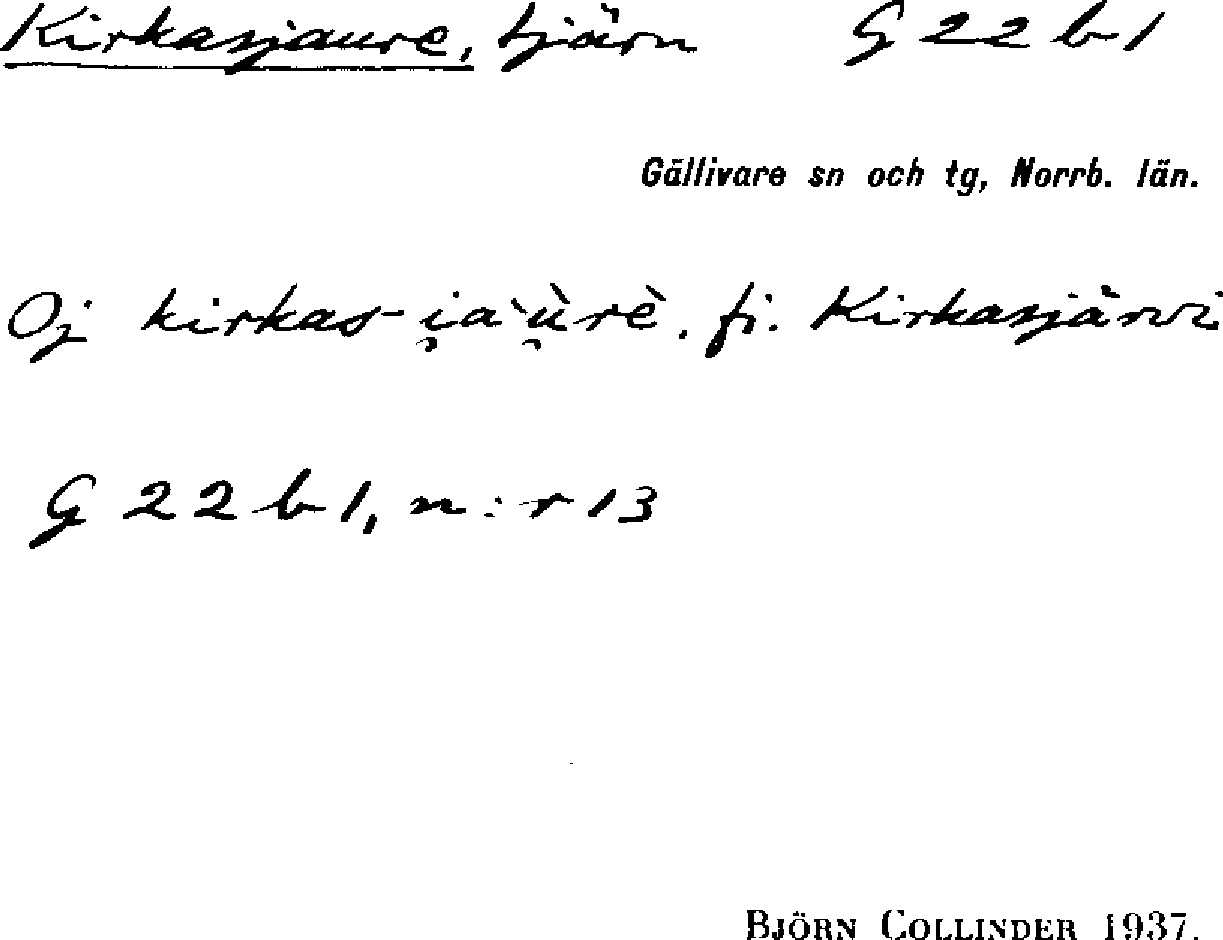 Kirkasjaure, tjärn G 22 b 1
Gällivare sn och tg, Norrb. län.
Oj kirkas-i̯a`u̯̇̀rè. fi. Kirkasjärvi
G 22 b 1, n:r 13
BJÖRN COLLINDER 1937.